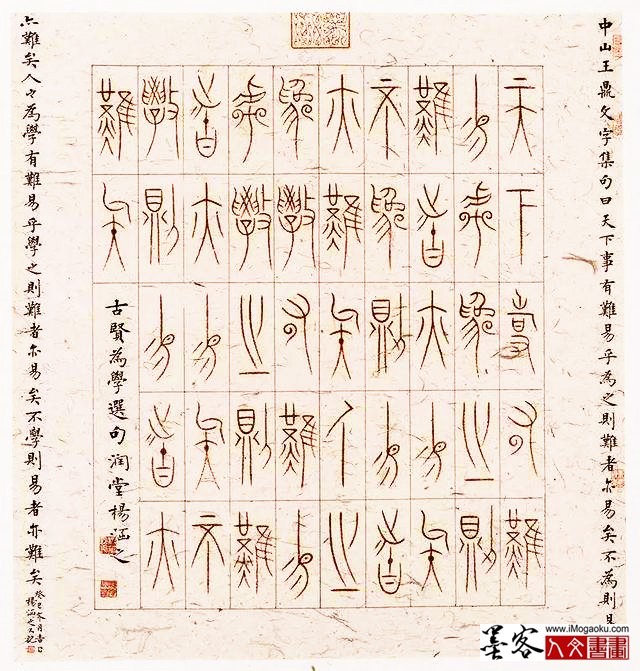 中山王鼎文字集句曰天下事有難易乎為之則難者亦易矣不為則
天下事有難
易乎為之則
難者亦易矣
不為則易者
亦難矣人之
為學有難易
乎學之則難
者亦易矣不
學則易者亦
難矣
古賢為學選句润堂楊涵之
亦難矣人之為學有難易乎學之則難者亦易矣不學則易者亦難矣
墨客
www.iMogaoku.com
人文書畫